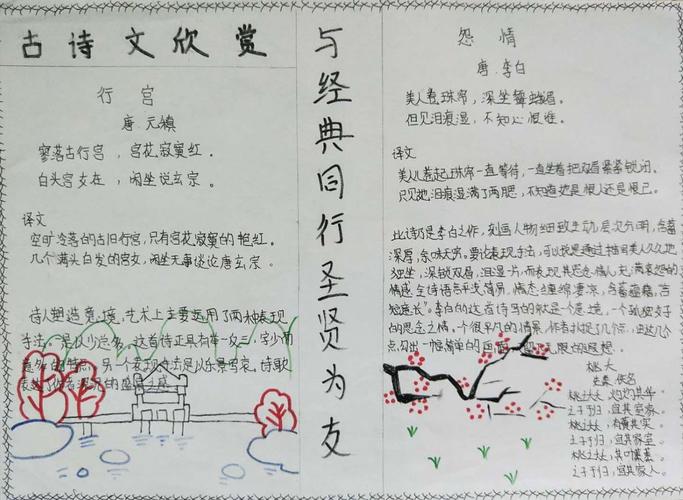 古诗文欣赏
行宫
唐 元稹
寥落古行宫，宫花寂寞红。
白头宫女在，闲坐说玄宗。
译文
空旷冷落的古旧行宫,只有宫花寂寞的艳红。
几个满头白发的宫女,闲坐无事谈论唐玄宗。
诗人塑造意境,艺术上主要运用了两种表现
手法。一是以少总多。这首诗正具有举一反三,字少而
意多的特点。另一个表现手法是以乐景写哀。诗歌
表达了
盛衰之感
与经典同行圣贤为友
怨情
唐.李白
美人卷珠帘，深坐颦蛾眉。
但见泪痕湿，不知心恨谁。
译文
美人儿卷起珠帘一直等待,一直坐着把双眉紧紧锁闭。
只见她泪痕湿满了两腮,不知道她是恨人还是恨己。
此诗乃是李白之作,刻画人物细致生动,层次分明,含蓄
深厚,余味无穷。要论表现手法,可以说是通过描写美人久久地
独坐,深锁双眉,泪湿一片,而表现其思念情人,充满哀怨的
情感。全诗语言平浅简易,情态缠绵凄凉,含蓄蕴藉,言
短意长"。李白的这首诗写的就是一个意境,一个孤独女子
的思念之情。一个很平凡的情景,作者抓捉了几笔,由这几个
点勾出一幅简单的画面,
无限的遐想。
桃夭
佚名
桃之夭夭,灼灼其华。
之子于归,宜其室家。
桃之夭夭,有蕡其实。
之子于归,宜其家室。
桃之夭夭,其叶蓁蓁。
之子于归,宜其家人。